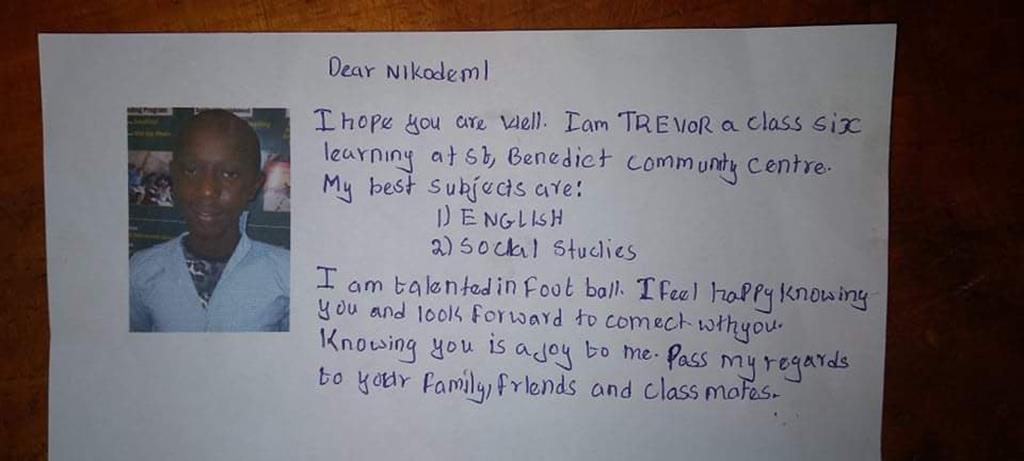 Dear Nikodem!
I hope you are well. I am TREVOR a class six
learning at St, Benedict community centre.
My best subjects are:
1) ENGLISH
2) Social Studies
I am talented in Foot ball. I feel happy knowing
you and look forward to comect wthyou.
Knowing you is a joy to me. Pass my regards
to your family, friends and class mates.